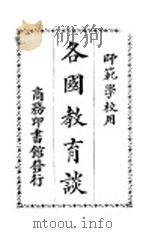 師範學校用
各國教育談
商務印書館發行
mtoou.info